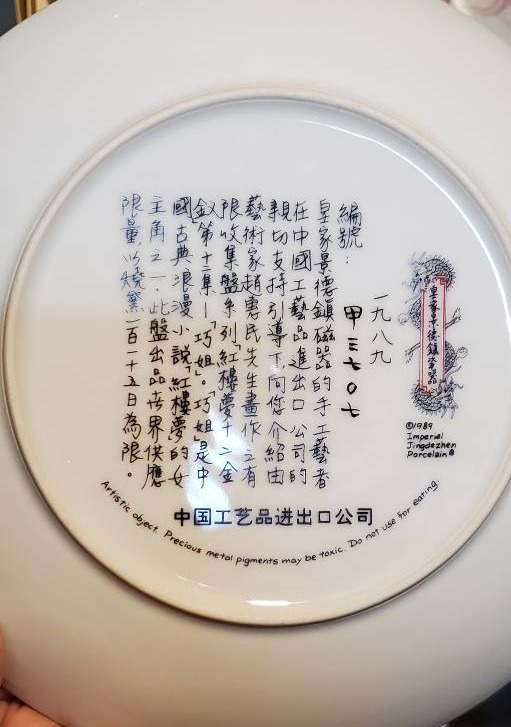 一九八九
編號：
甲三七0七
皇家景德鎮磁器的手工藝者
在中國工藝品進出口公司的
親切支持引導下,向您介紹由
藝術家趙惠民先生畫作之有
限收集盤系列「紅樓夢十二金
釵」第十二集—「巧姐」。巧姐是中
國古典浪漫小說「紅樓夢」的女
主角之一.此盤出品世界供應
限量,以燒窯一百一十五日為限。
©1989
Imperial
Jingdezhen
Porcelain®
中国工艺品进出口公司
Artistic object. Precious metal pigments may be toxic. Do not use for eating.